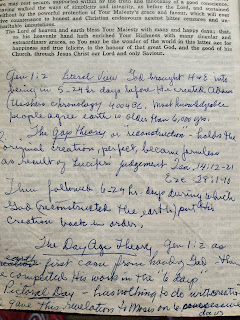 may rest secure, supported within by the truth and innocency of a good conscience,
having walked the ways of simplicity and integrity, as before the Lord, and sustained
without by the powerful protection of Your Majesty's grace and favour, which will ever
give countenance to honest and Christian endeavours against bitter censures and un-
charitable imputations.
The Lord of heaven and earth bless Your Majesty with many and happy days, that,
as his heavenly hand hath enriched Your Highness with many singular and
extraordinary graces, so You may be the wonder of the world in this latter age for
happiness and true felicity, to the honour of that great God, and the good of his
Church, through Jesus Christ our Lord and only Saviour.
Gen 1:2 Literal View God brought H + E into
being in 5-24 hrs days before He created Adam
Ussher's chronology 4004 BC. Most knowledgeable
people agree earth is older than 6,000 yrs.
The Gap Theory or reconstruction - holds the
original creation, perfect, became formless
as result of Lucifer's judgement 14:12-21
28:1-
Then followed 6-24 hrs. days during which
God reconstructed the earth & put His
creation back in order.
The Day Age Theory Gen 1:2 as
first come from hand of God - then
completed His work in the "6 days"
Pictoral Day - has nothing to do with creation
gave this revelation to Moses on 6
days